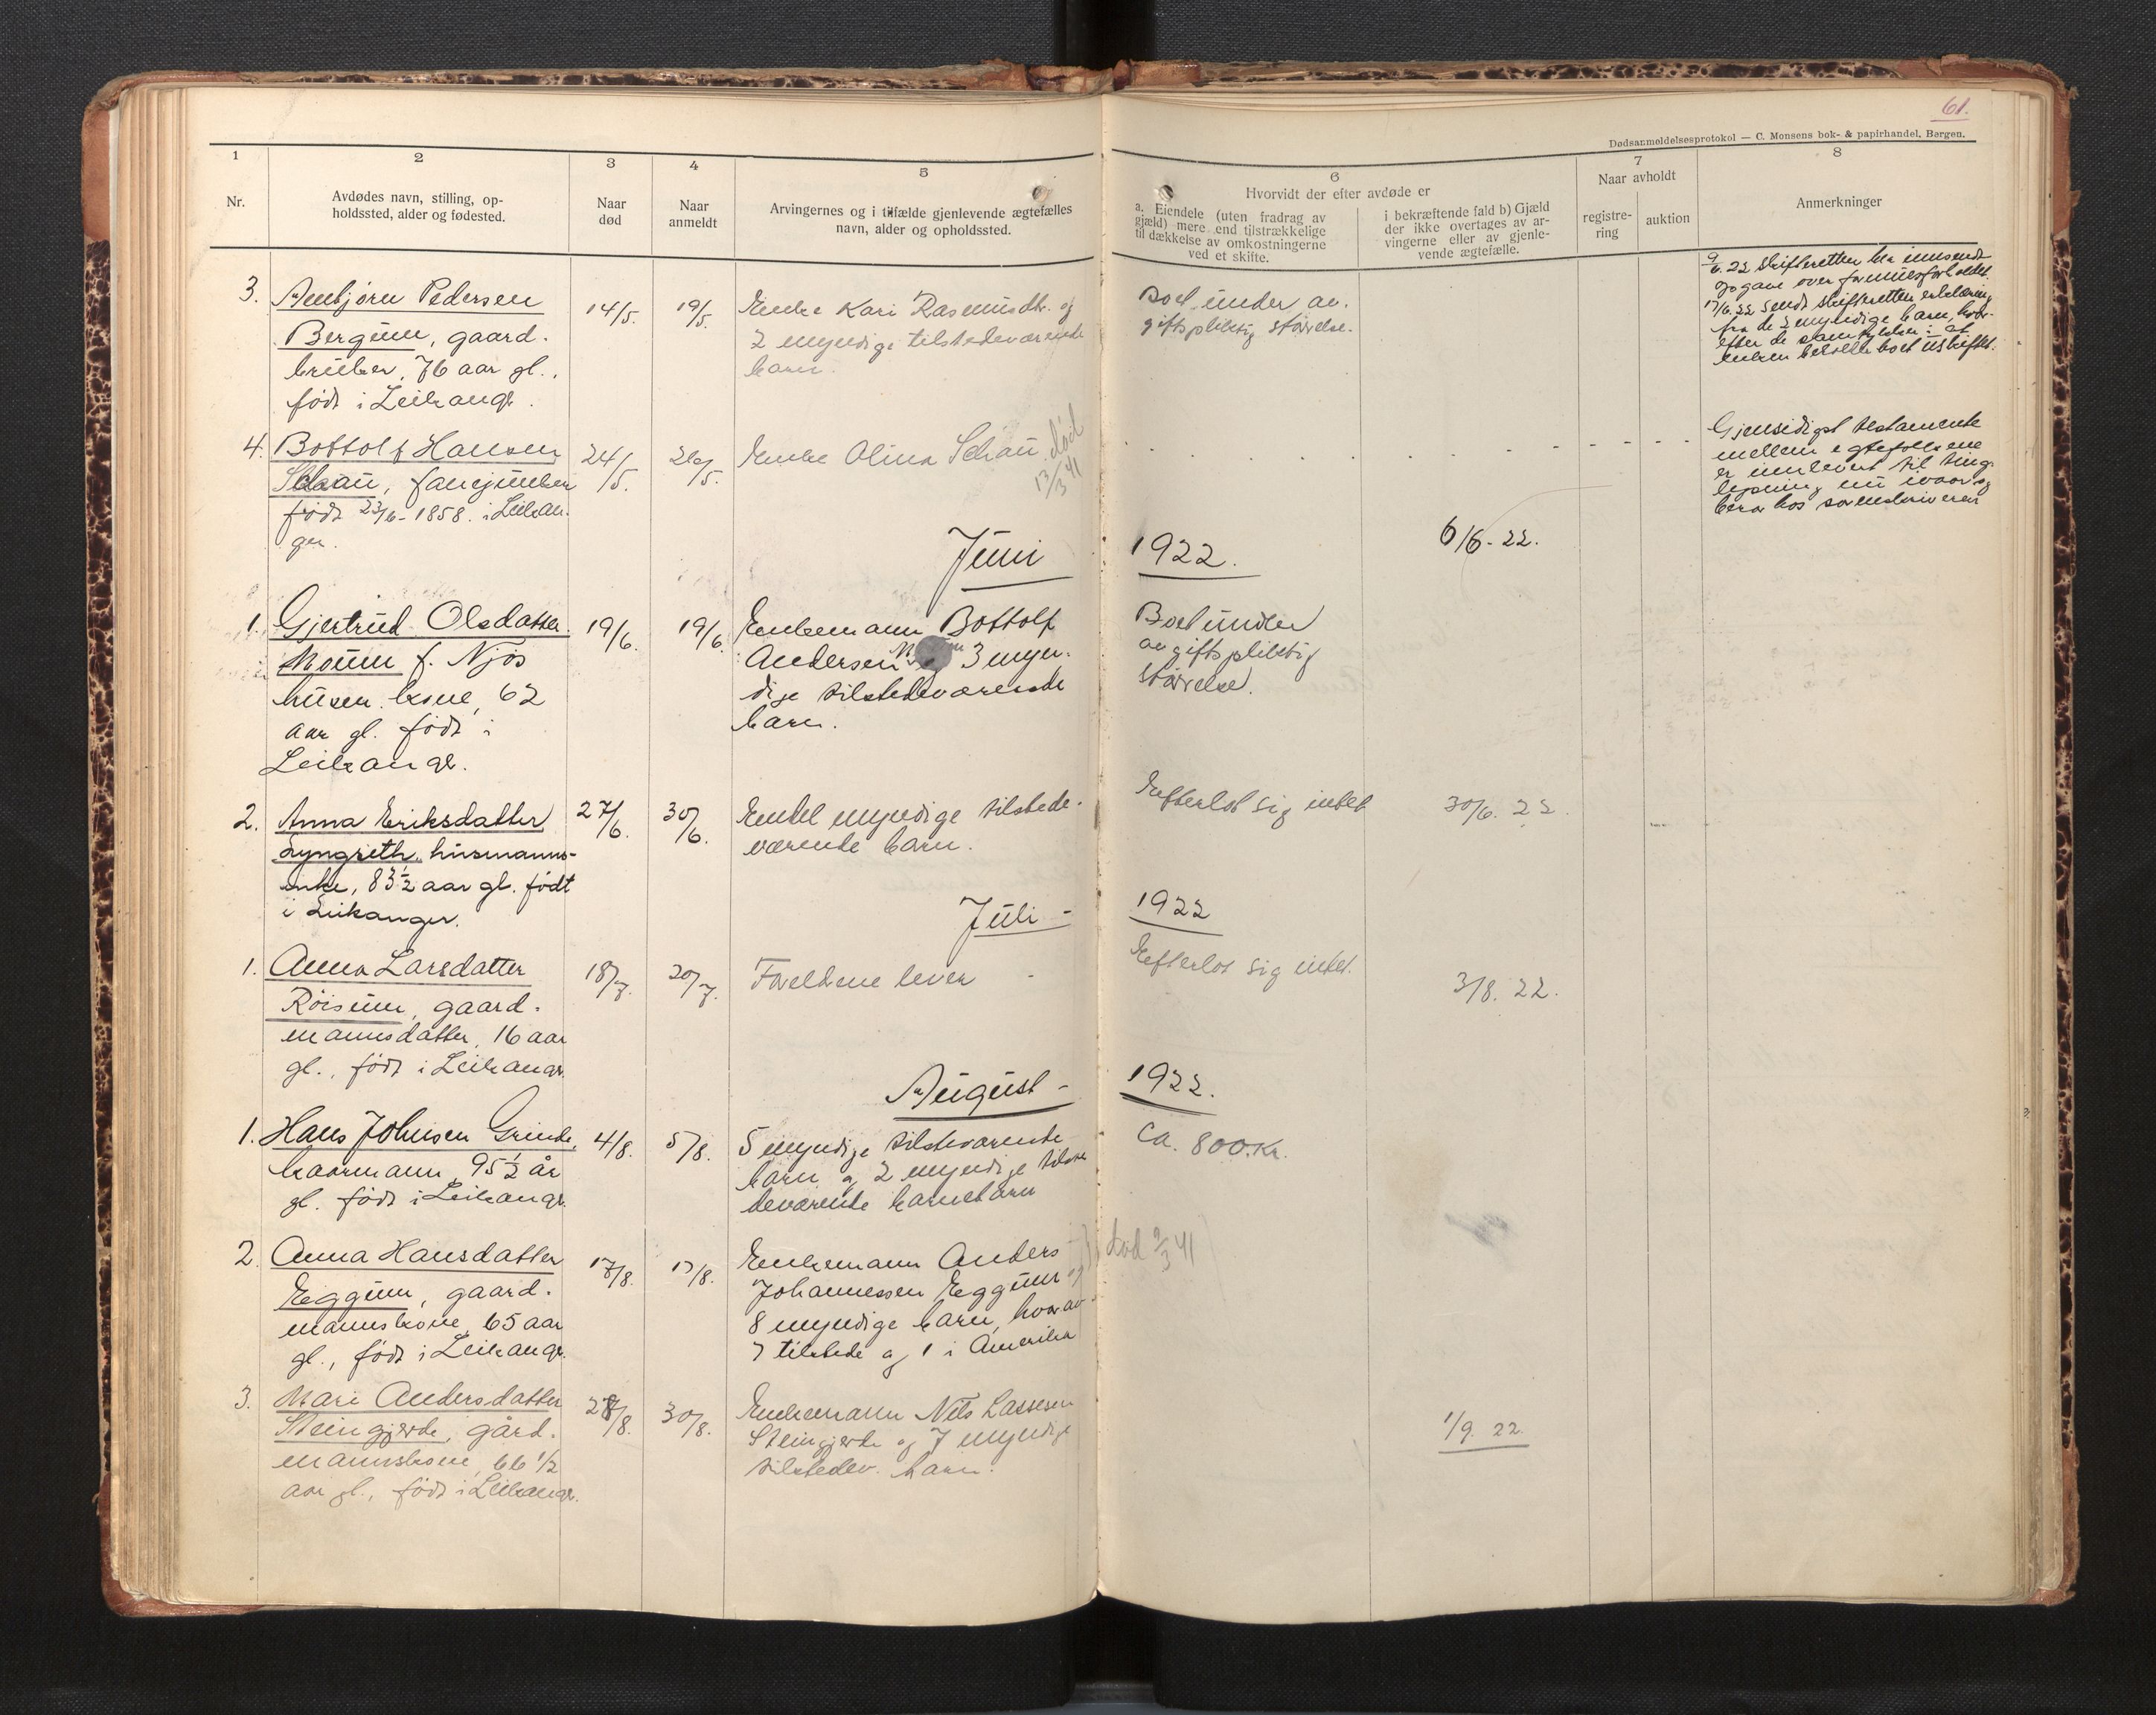 61.
Dødsanmeldelsesprotokol — C. Monsens bok- & papirhandel, Bergen.
1
Nr.
2
Avdødes navn, stilling, op-
holdssted, alder og fødested.
3
Naar
død
4
Naar
anmeldt
5
Arvingernes og i tilfælde gjenlevende ægtefælles
navn, alder og opholdssted.
6
Hvorvidt der efter avdøde er
a. Eiendele (uten fradrag av
gjæld) mere end tilstrækkelige
til dækkelse av omkostningerne
ved et skifte.
i bekræftende fald b) Gjæld
der ikke overtages av ar-
vingerne eller av gjenle-
vende ægtefælle.
7
Naar avholdt
registre-
ring
auktion
8
Anmerkninger
3.
Ambjørn Pedersen
Bergum, gaard-
bruker, 76 aar gl.,
født i Leikangr.
14/5.
19/5.
Enke Kari Rasmusdtr. og
2 myndige tilstedeværende
barn.
Boet under av-
giftspliktig størrelse.
9/6.22 skifteretten bli innsendt
opgave over formuesforholdet.
17/6.22 sendt skifteretten erklæring
fra de 2 myndige barn, hvor-
efter de samtykker i at
enken beholder boet uskiftet.
4.
Bottolf Hansen
Schau,
født 23/6-1858. i Leikan-
ger.
24/5.
26/5.
Enke Olina Schau. død
13/3 41
Gjensidigt testamente
mellem egtefolkene
er innlevert til ting-
lysning
hos sorenskriveren
6/6-22.
Juni 1922.
1.
Gjertrud Olsdatter
Moum f. Njøs
husm. kone, 62
aar gl. født i
Leikangr.
19/6.
19/6.
Enkemann Bottolf
Andersen 3 myn-
dige tilstedeværende
barn.
Boet under
avgiftspliktig
størrelse.
2.
Anna Eriksdatter
Lyngseth, husmanns-
enke, 83 1/2 aar gl. født
i Leikanger.
27/6.
30/6.
Endel myndige tilstede-
værende barn.
Efterlot sig intet
30/6. 22.
Juli - 1922
1.
Anna Larsdatter
Röisum, gaard-
mannsdatter, 16 aar
gl., født i Leikangr.
18/7.
20/7.
Foreldrene lever
Efterlot sig intet.
3/8. 22.
August - 1922.
1.
Hans Johnsen Grinde,
kaarmann, 95 1/2 år
gl. født i Leikangr.
4/8.
5/8.
5 myndige tilsteværende
barn og 2 myndige tilste
deværende barnebarn
ca. 800.Kr.
2.
Anna Hansdatter
Eggum, gaard-
mannskone, 65 aar
gl., født i Leikangr.
17/8.
17/8.
Enkemann Anders
Johannessen Eggum og
8 myndige barn, hvorav
7 tilstede og 1 i Amerika
død 9/3 41
3.
Mari Andersdatter
Steingjerde, gård-
mannskone, 66 1/2
aar gl., født i Leikangr.
28/8.
30/8.
Enkemann Nils Lassesen
Steingjerde og 7 myndige
tilstedev. barn.
1/9. 22.